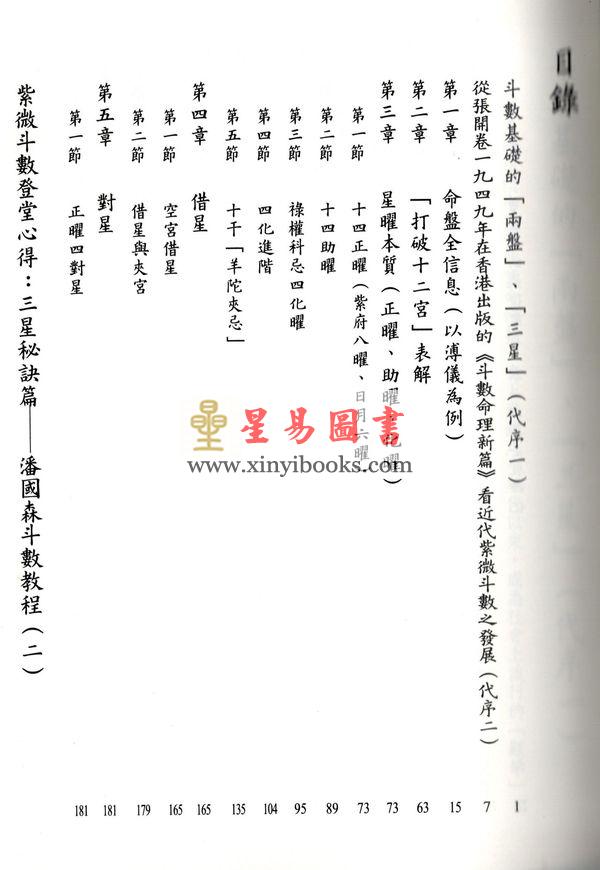 目錄
斗數基礎的「兩盤」、「三星」(代序一) 1
從張開卷一九四九年在香港出版的《斗數命理新篇》看近代紫微斗數之發展(代序二) 7
第一章 命盤全信息(以溥儀為例) 15
第二章 「打破十二宮」表解 63
第三章 星曜本質(正曜、助曜、化曜) 73
第一節 十四正曜(紫府八曜、日月六曜) 73
第二節 十四助曜 89
第三節 祿權科忌四化曜 95
第四節 四化進階 104
第五節 十干「羊陀夾忌」 135
第四章 借星 165
第一節 空宮借星 165
第二節 借星與夾宮 179
第五章 對星 181
第一節 正曜四對星 181
紫微斗數登堂心得:三星秘訣篇——潘國森斗數教程(二)
星易圖書
www.xinyibooks.com